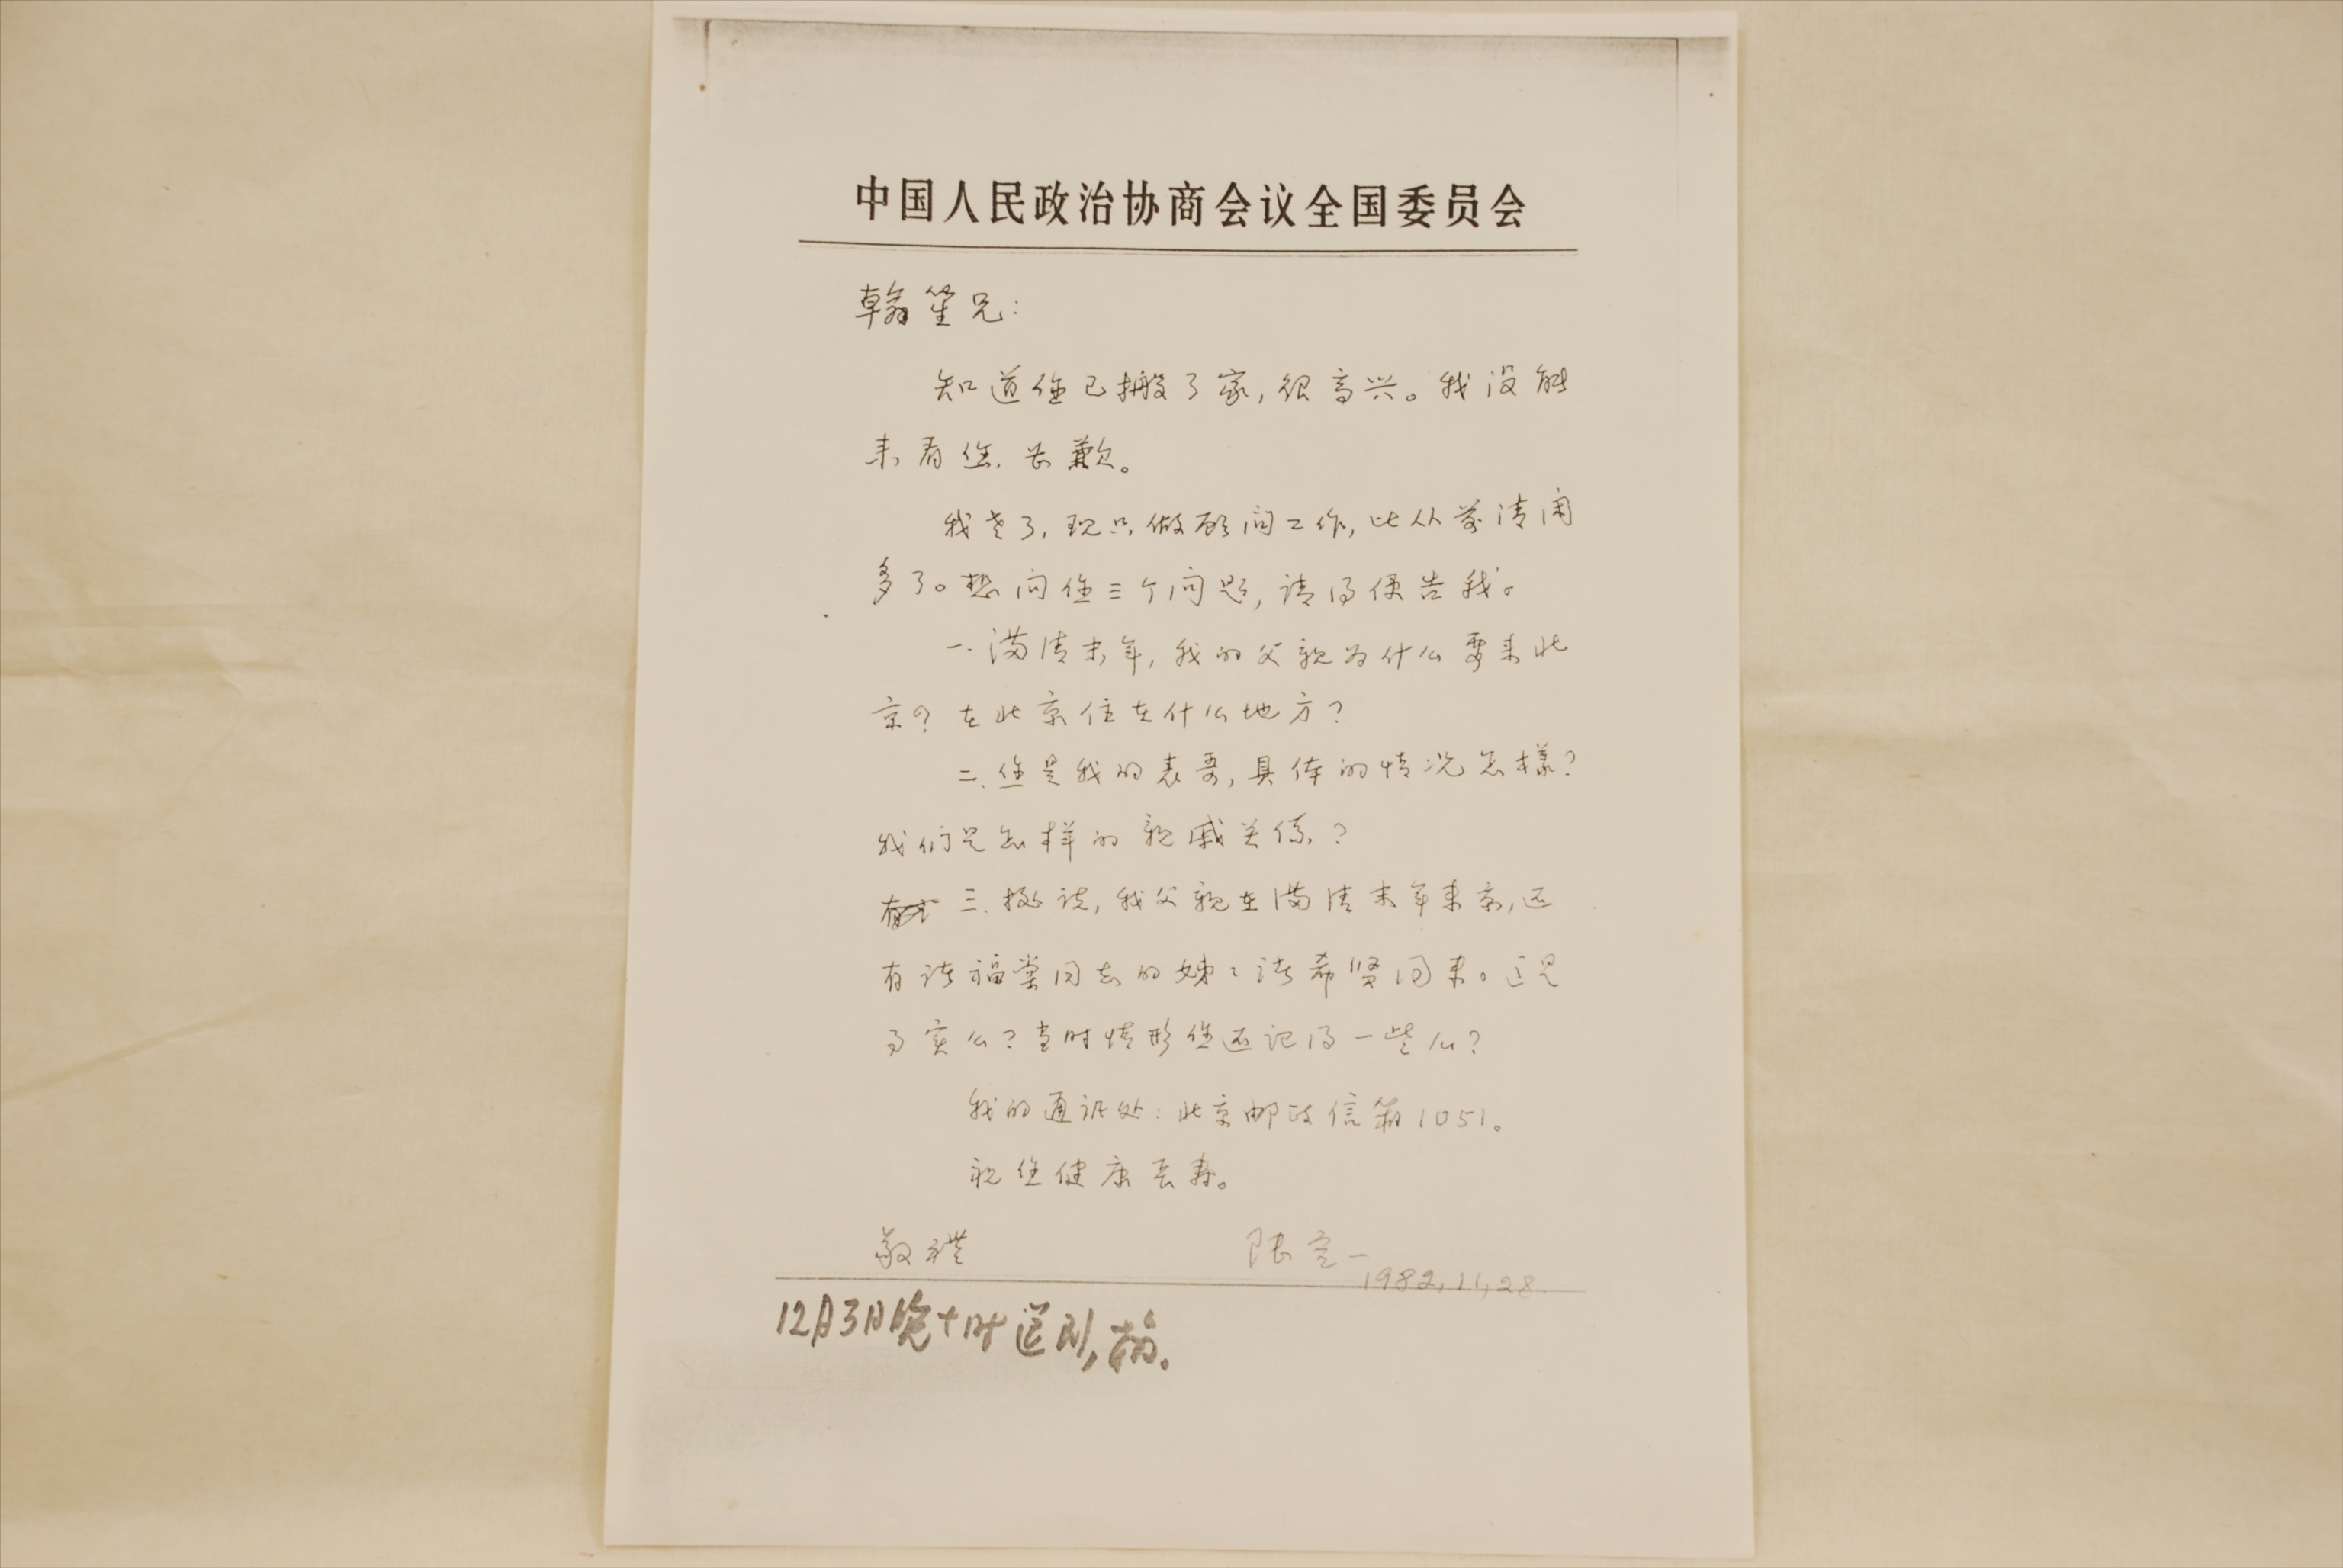 中国人民政治协商会议全国委员会
翰笙兄：
知道您已搬了家，很高兴。我没能
来看您，长歉。
我老了，现只做顾问工作，比从前清闲
多了。想问您三个问题，请得便告我。
一、满清末年，我的父親为什么要来北
京？在北京住在什么地方？
二、您是我的表哥，具体的情况怎樣？
我们是怎样的親戚关係？
三、据说，我父親在满清末年来京，还
有诸福棠同志的姊々诸希贤同来。这是
事实么？当时情形您还记得一些么？
我的通讯处：北京邮政信箱1051。
祝您健康长寿。
敬礼
陆定一
1982，11，28.
12月3日晚十时送到，